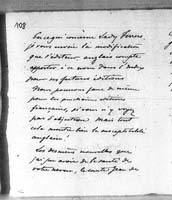 108
En ce qui concerne Lady Ferrers
je vous envoie la modification
que l'éditeur anglais compte
apporter à ce nom dans l'Index
pour ses futures éditions.
Nous pouvons faire de même
pour les prochaines éditions
françaises, si vous n'y voyez
pas d'objection. Mais tout
cela montre bien la susceptibilité
anglaise!
Les dernières nouvelles que
j'ai pu avoir de la santé de
votre neveu, le comte Jean de